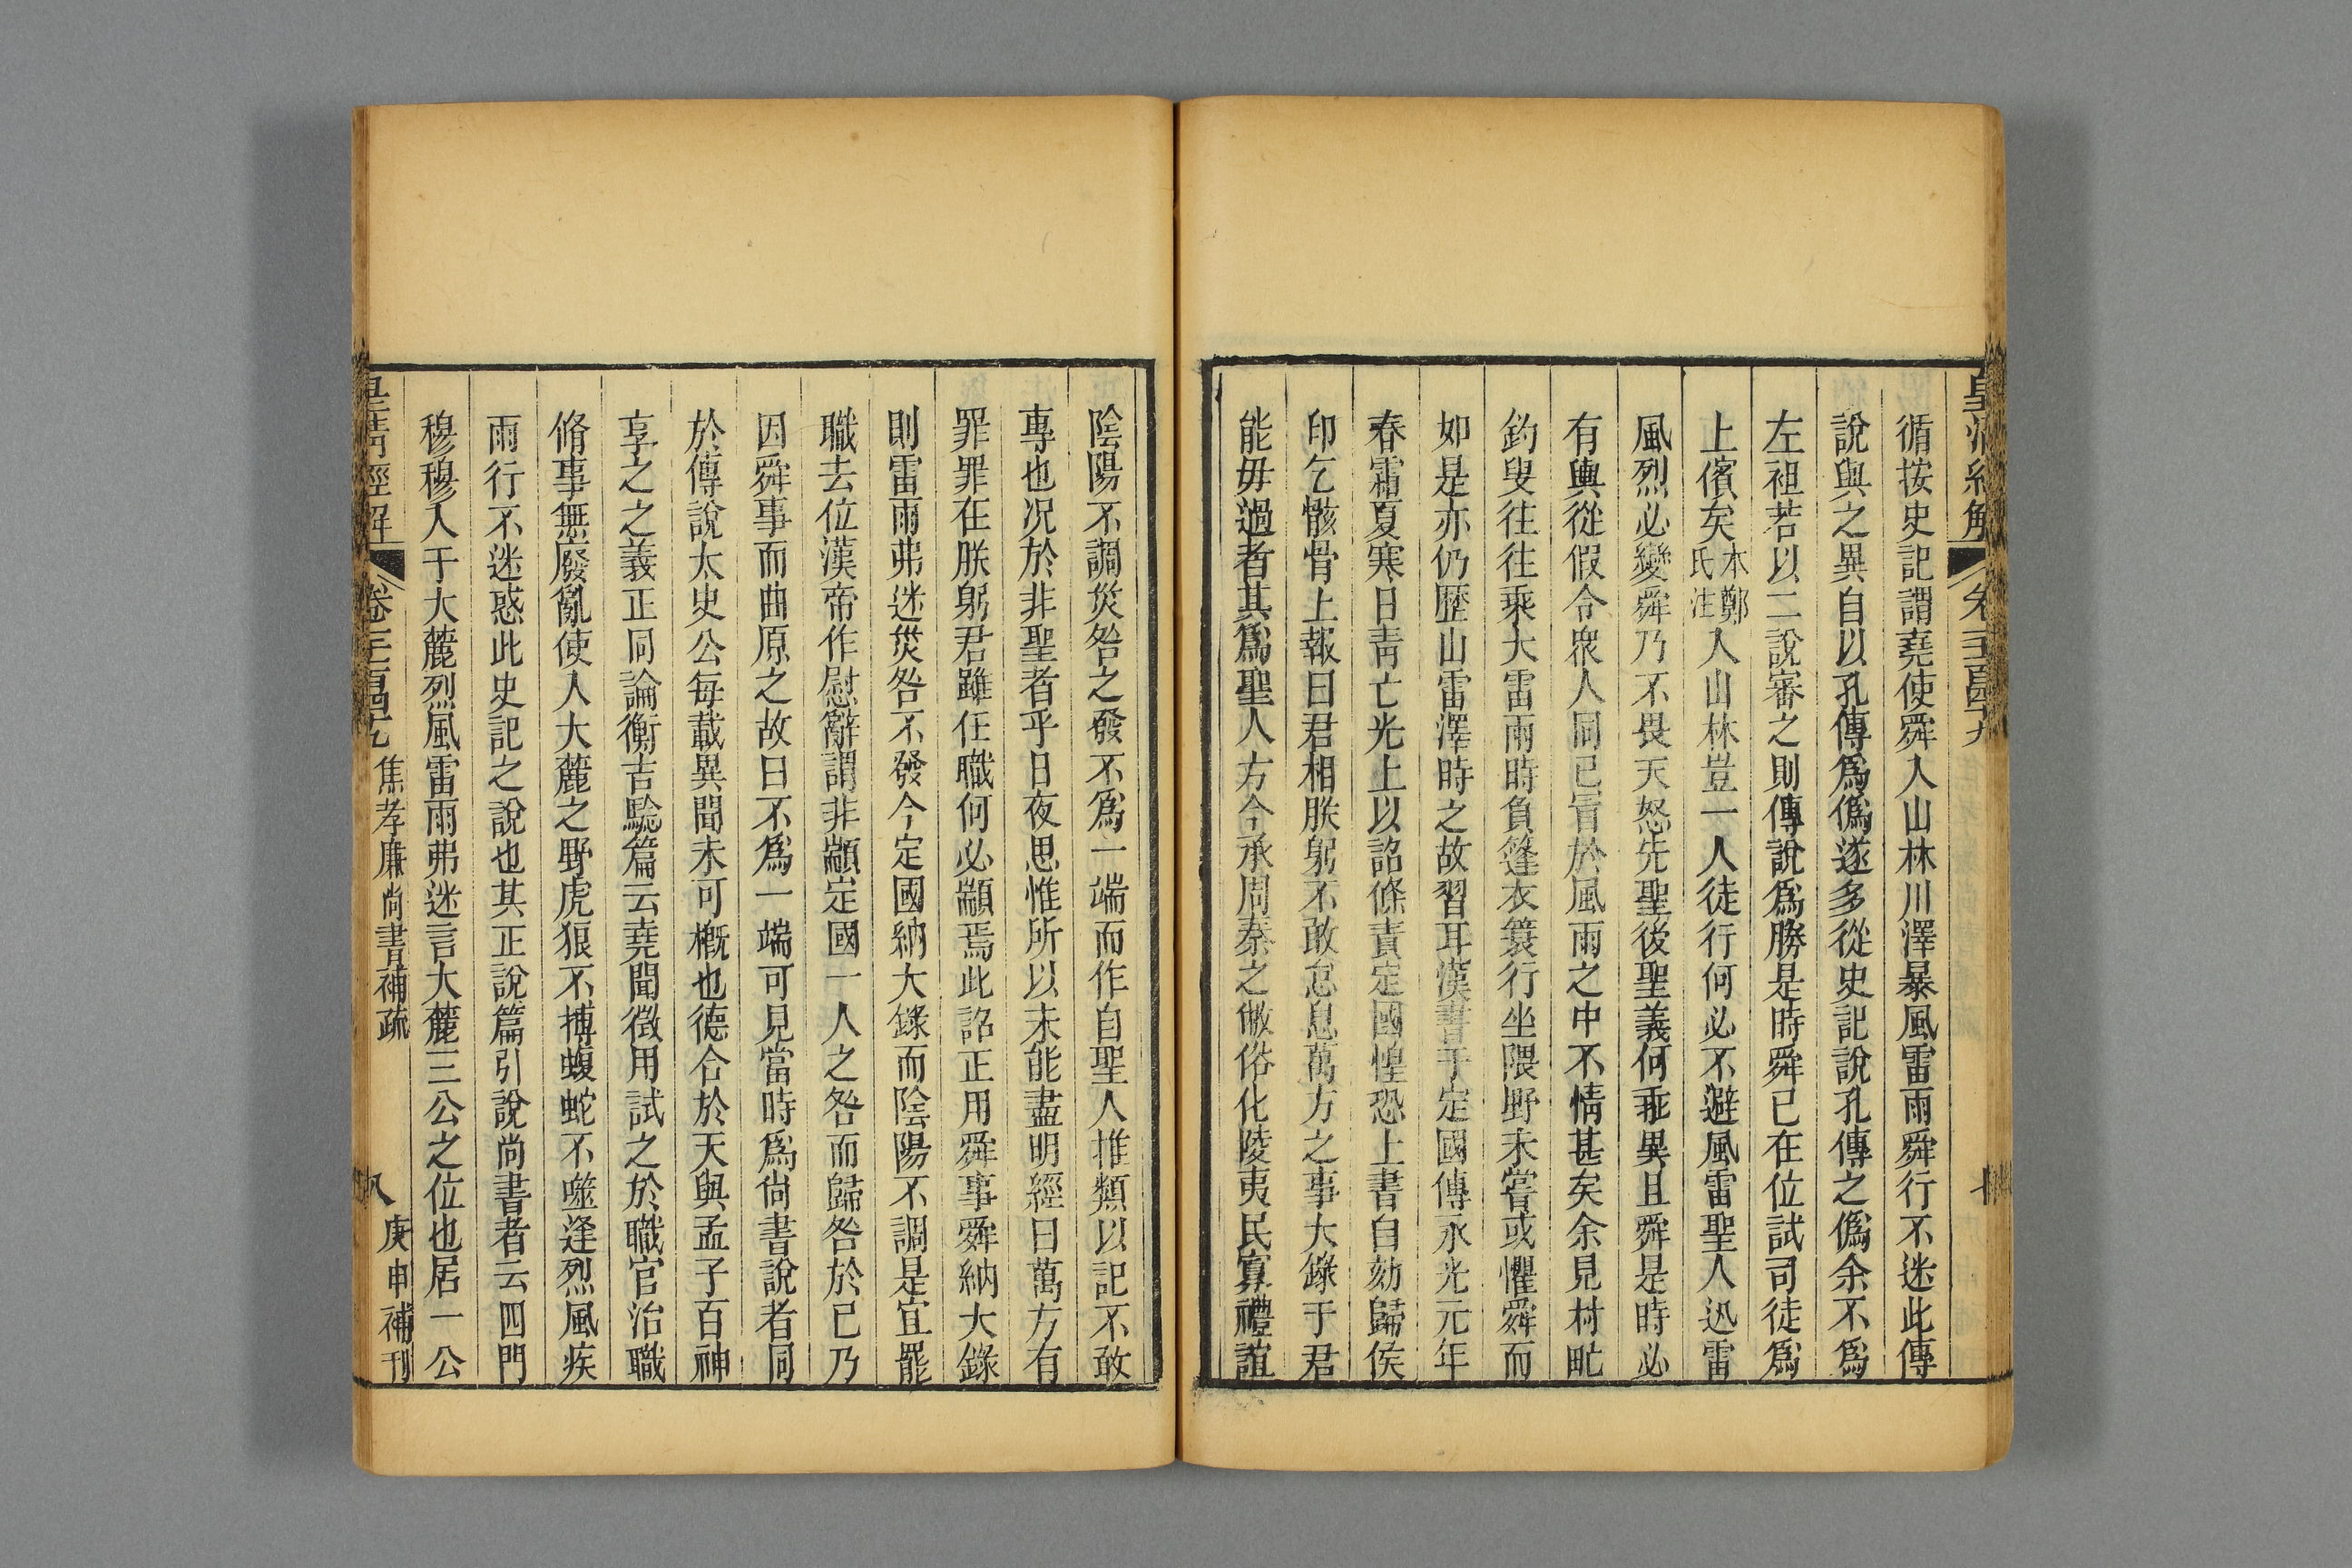 循按史記謂堯使舜入山林川澤暴風雷雨舜行不迷此傳
說與之異自以孔傳爲僞遂多從史記說孔傳之僞余不爲
左袒若以二說審之則傳說爲勝是時舜已在位試司徒爲
上儐矣本鄭氏注入山林豈一人徒行何必不避風雷聖人迅雷
風烈必變舜乃不畏天怒先聖後聖義何乖異且舜是時必
有輿從假令衆人同已冒於風雨之中不情甚矣余見村甿
釣叟往往乘大雷雨時負篷衣簑行坐隈野未嘗或懼舜而
如是亦仍歷山雷澤時之故習耳漢書于定國傳永光元年
春霜夏寒日靑亡光上以詔條責定國惶恐上書自劾歸侯
印乞骸骨上報曰君相朕躬不敢怠息萬方之事大錄于君
能毋過者其爲聖人方今承周秦之敝俗化陵夷民寡禮誼
陰陽不調災咎之發不爲一端而作自聖人推類以記不敢
專也况於非聖者乎日夜思惟所以未能盡明經曰萬方有
罪罪在朕躬君雖任職何必顓焉此詔正用舜事舜納大錄
則雷雨弗迷災咎不發今定國納大錄而陰陽不調是宜罷
職去位漢帝作慰辭謂非顓定國一人之咎而歸咎於已乃
因舜事而曲原之故曰不爲一端可見當時爲尙書說者同
於傳說太史公每載異聞未可槪也德合於天與孟子百神
享之之義正同論衡吉驗篇云堯聞徵用試之於職官治職
脩事無廢亂使人大麓之野虎狼不搏蝮蛇不噬逢烈風疾
雨行不迷惑此史記之說也其正說篇引說尙書者云四門
穆穆入于大麓烈風雷雨弗迷言大麓三公之位也居一公
皇淸經解 卷一千一百四十九 焦孝廉尙書補疏 八 庚申補刊